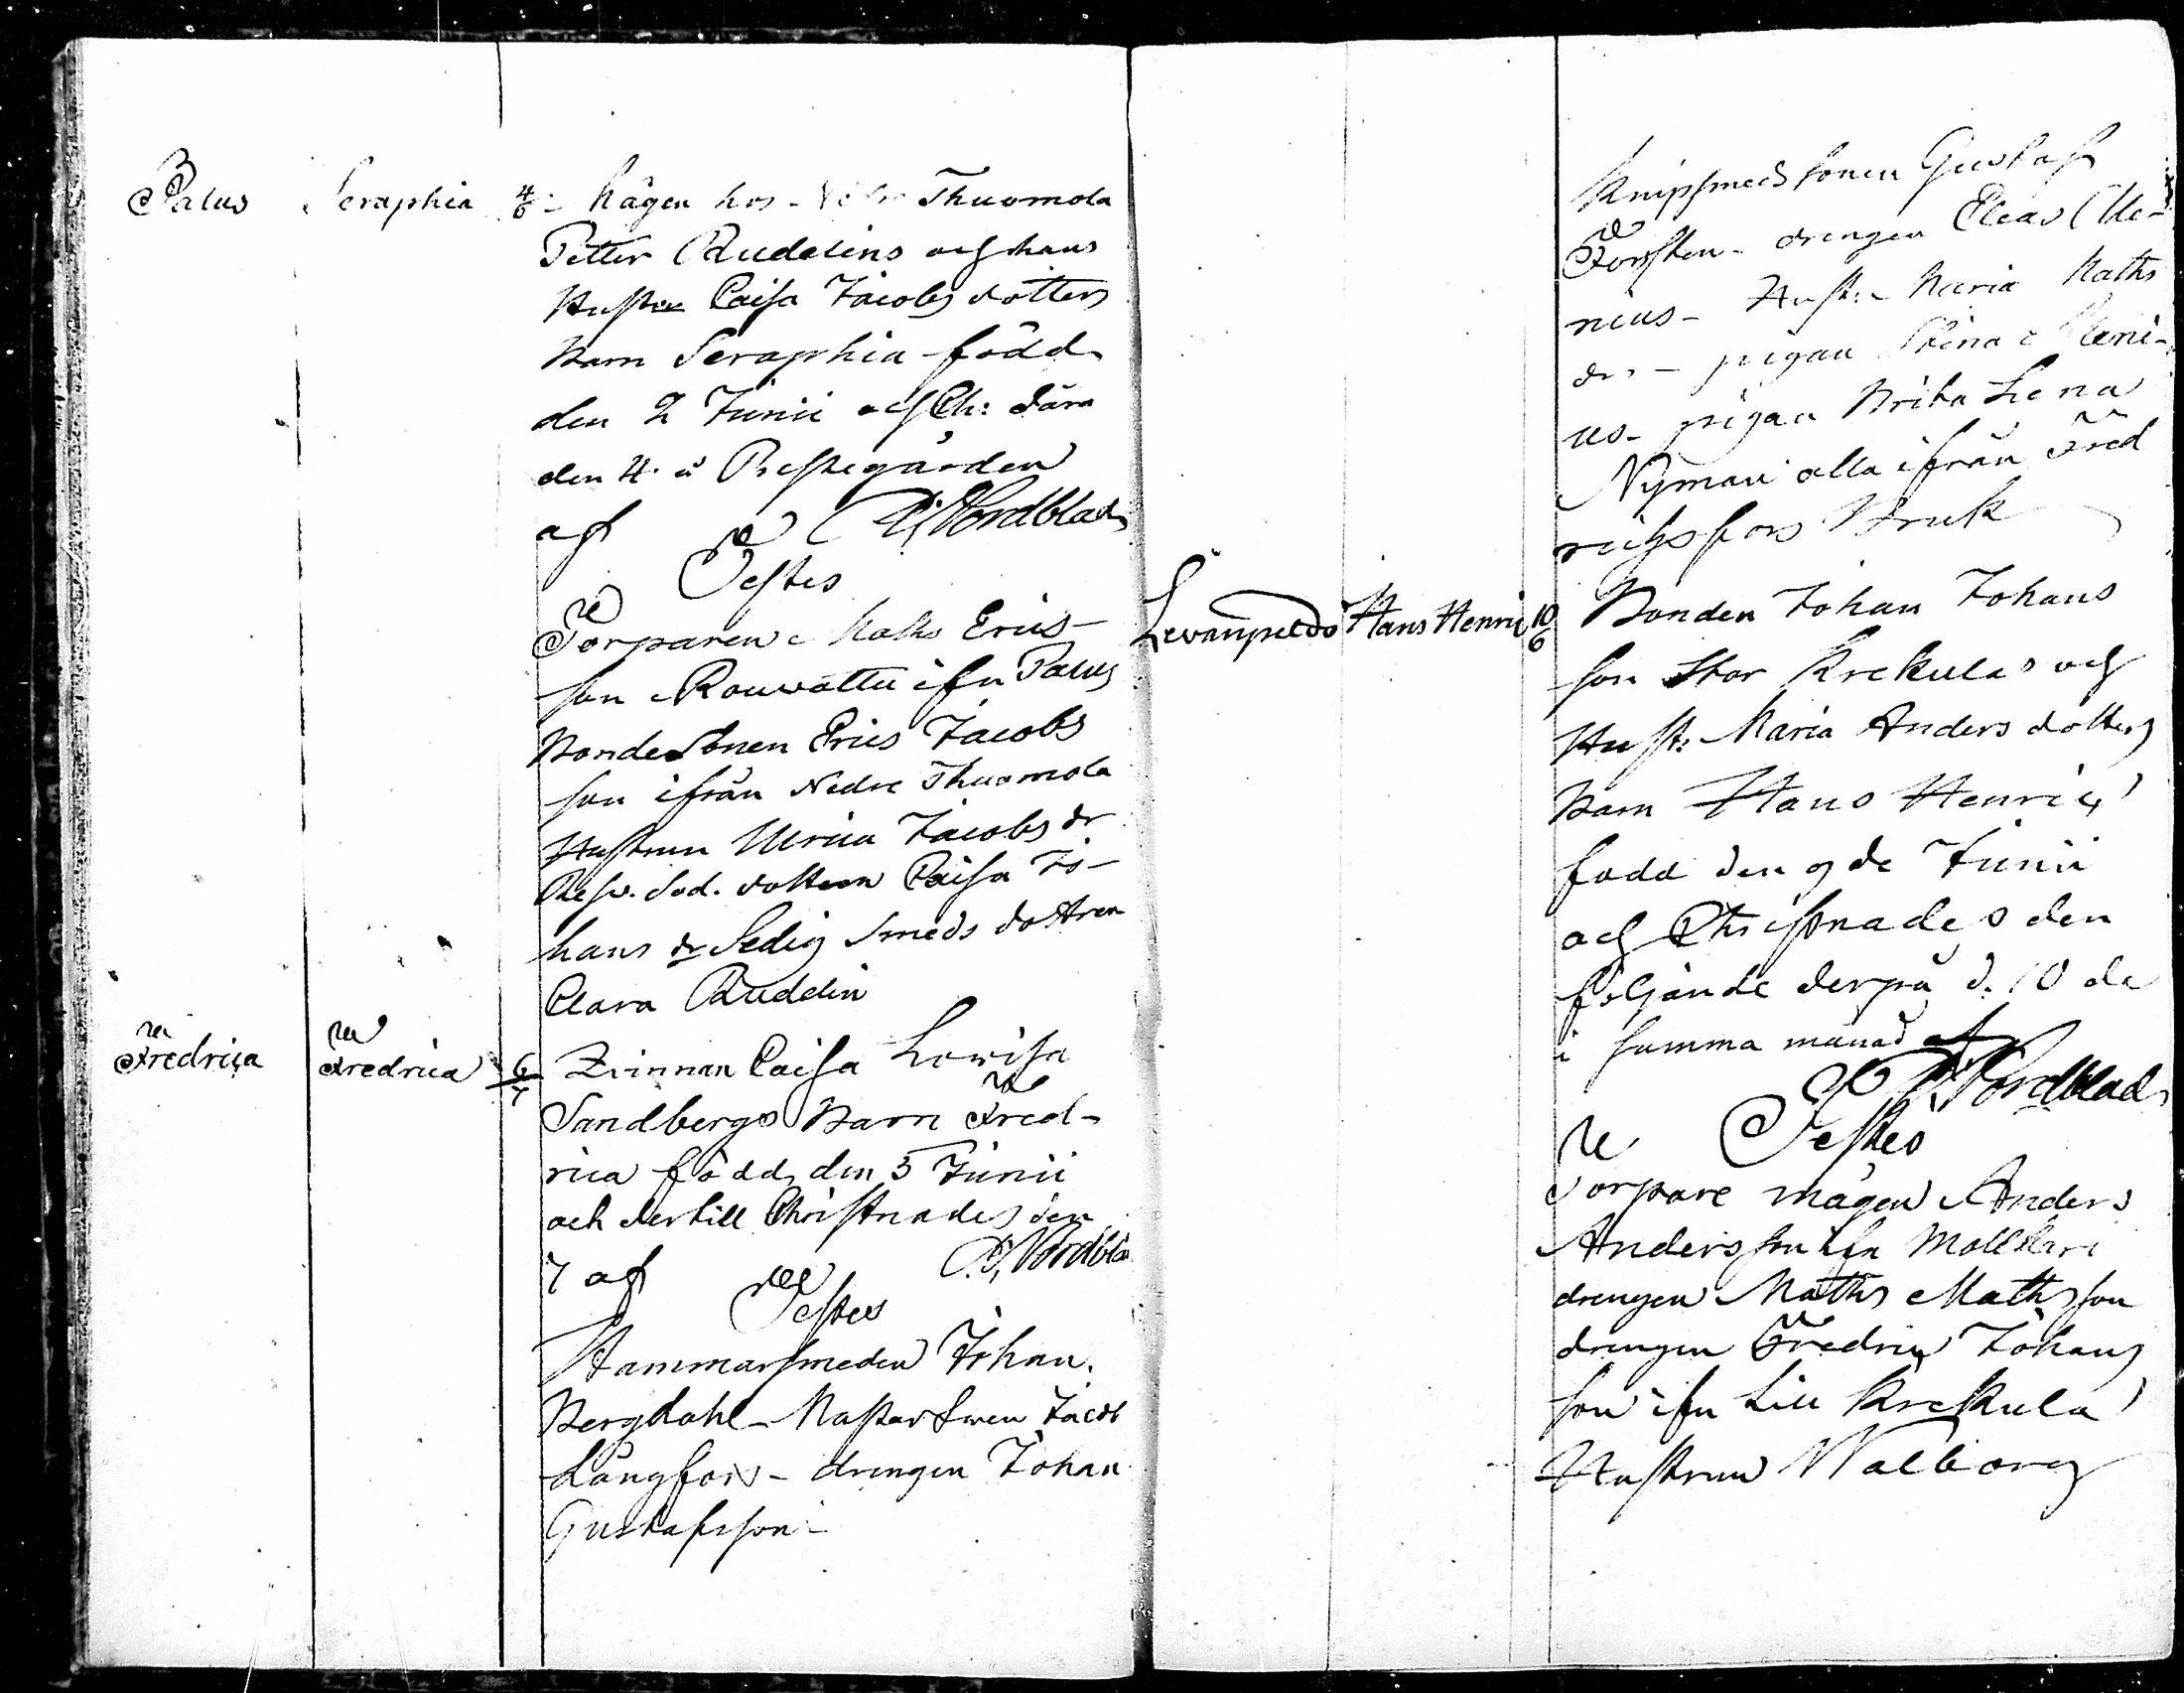 Palus Seraphia 4/6 Mågen hos Thuomola
Petter Ruddelins och hans
Hustru Caisa Jacobs dotters
Barn Seraphia född
den 2 Junii och Ch: dära
den 4 i Prestegården
af P. Nordblad
Testes
Torparen Maths Erics-
son Rouvattu ifrn Palus
Bondesonen Erics Jacobs
son ifrån Nedre Thuomola
Hustrun Ulrica Jacobs dr
Resv. Sod. dottren Caisa Jo-
hans dr Ledig Smeds dottren
Clara Ruddelin
Fredrica Fredrica 6/7 Qvinnan Caisa Lowisa
Sandbergs Barn Fred-
rica född den 5 Junii
och dertill Christnades den
7 af P. Nordbla
Testes
Hammarsmeden Johan
Bergdahl - Mästar Swen Jacob
Långfors - drengen Johan
Gustafsson -
Knipsmeds sonen Gustaf
Forsten - drengen Elias Cle-
nius - Hust: Maria Maths
dr - pigan Stina Cleni-
us - pigan Brita Lena
Nyman alla ifrån Fred
richsfors Bruk
Levanpeldo Hans Henric 10/6 Bonden Johan Johans
son Stor Krekulas och
Hust: Maria Anders dotters
Barn Hans Henric
född den 9 de Junii
och Christnades den
följande derpå d. 10 de
i samma månad af
P. Nordblad
Testes
Torpare mågen Anders
Andersson ifrn
drengen Maths Mathsson
drengen Fredric Johans
son ifrn Lill Krekula
Hustrun Walborg